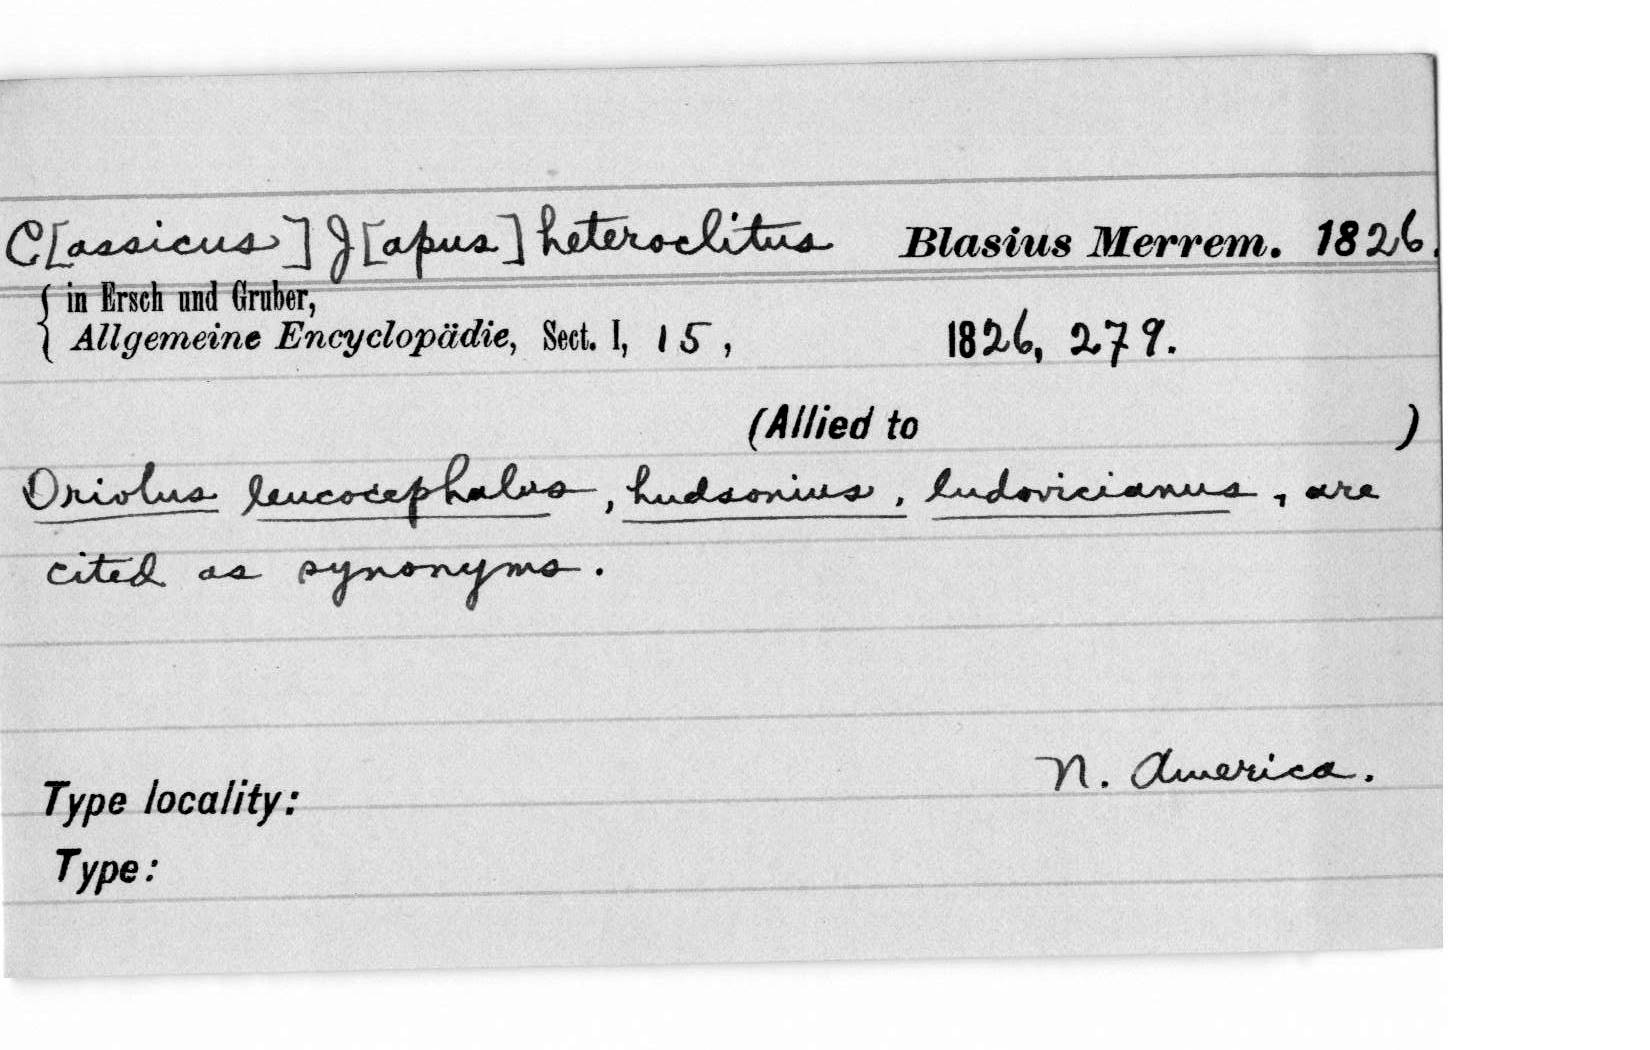 C[assicus] J[apus] heteroclitus Blasius Merrem. 1826.
in Ersch und Gruber,
Allgemeine Encyclopädie, Sect. I, 15, 1826, 279.
(Allied to )
Oriolus leucocephalus, hudsonius, ludovicianus, are
cited as synonyms.
N. America.
Type locality:
Type: